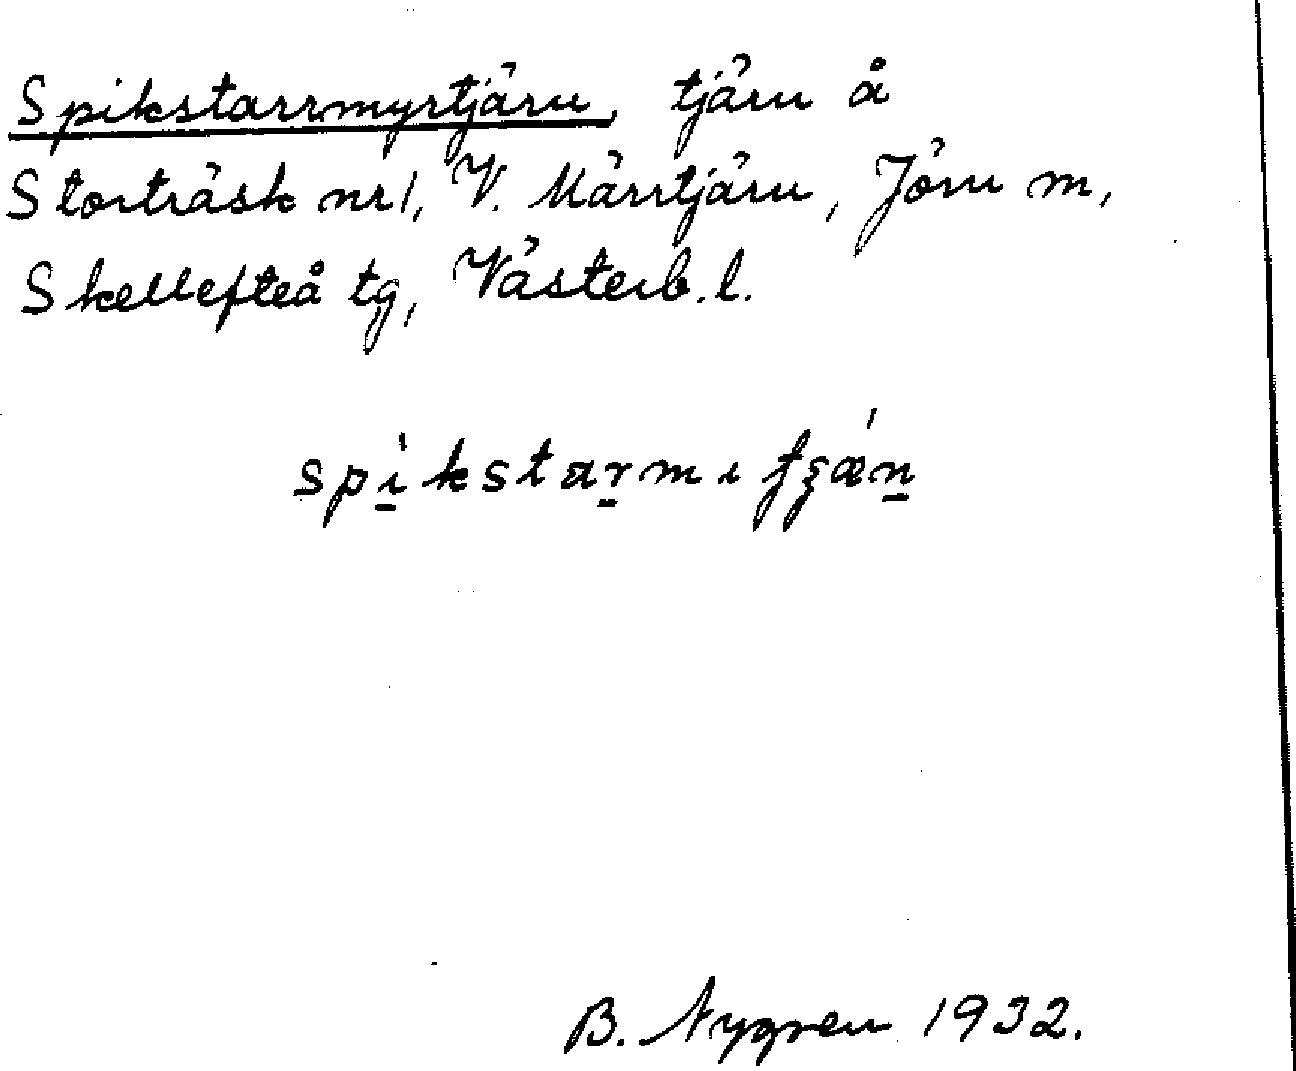 Spikstarrmyrtjärn, tjärn å
Storträsk nr1, V. Märrtjärn, Jörn m,
Skellefteå tg, Västerb. l.
B. Nygren 1932.